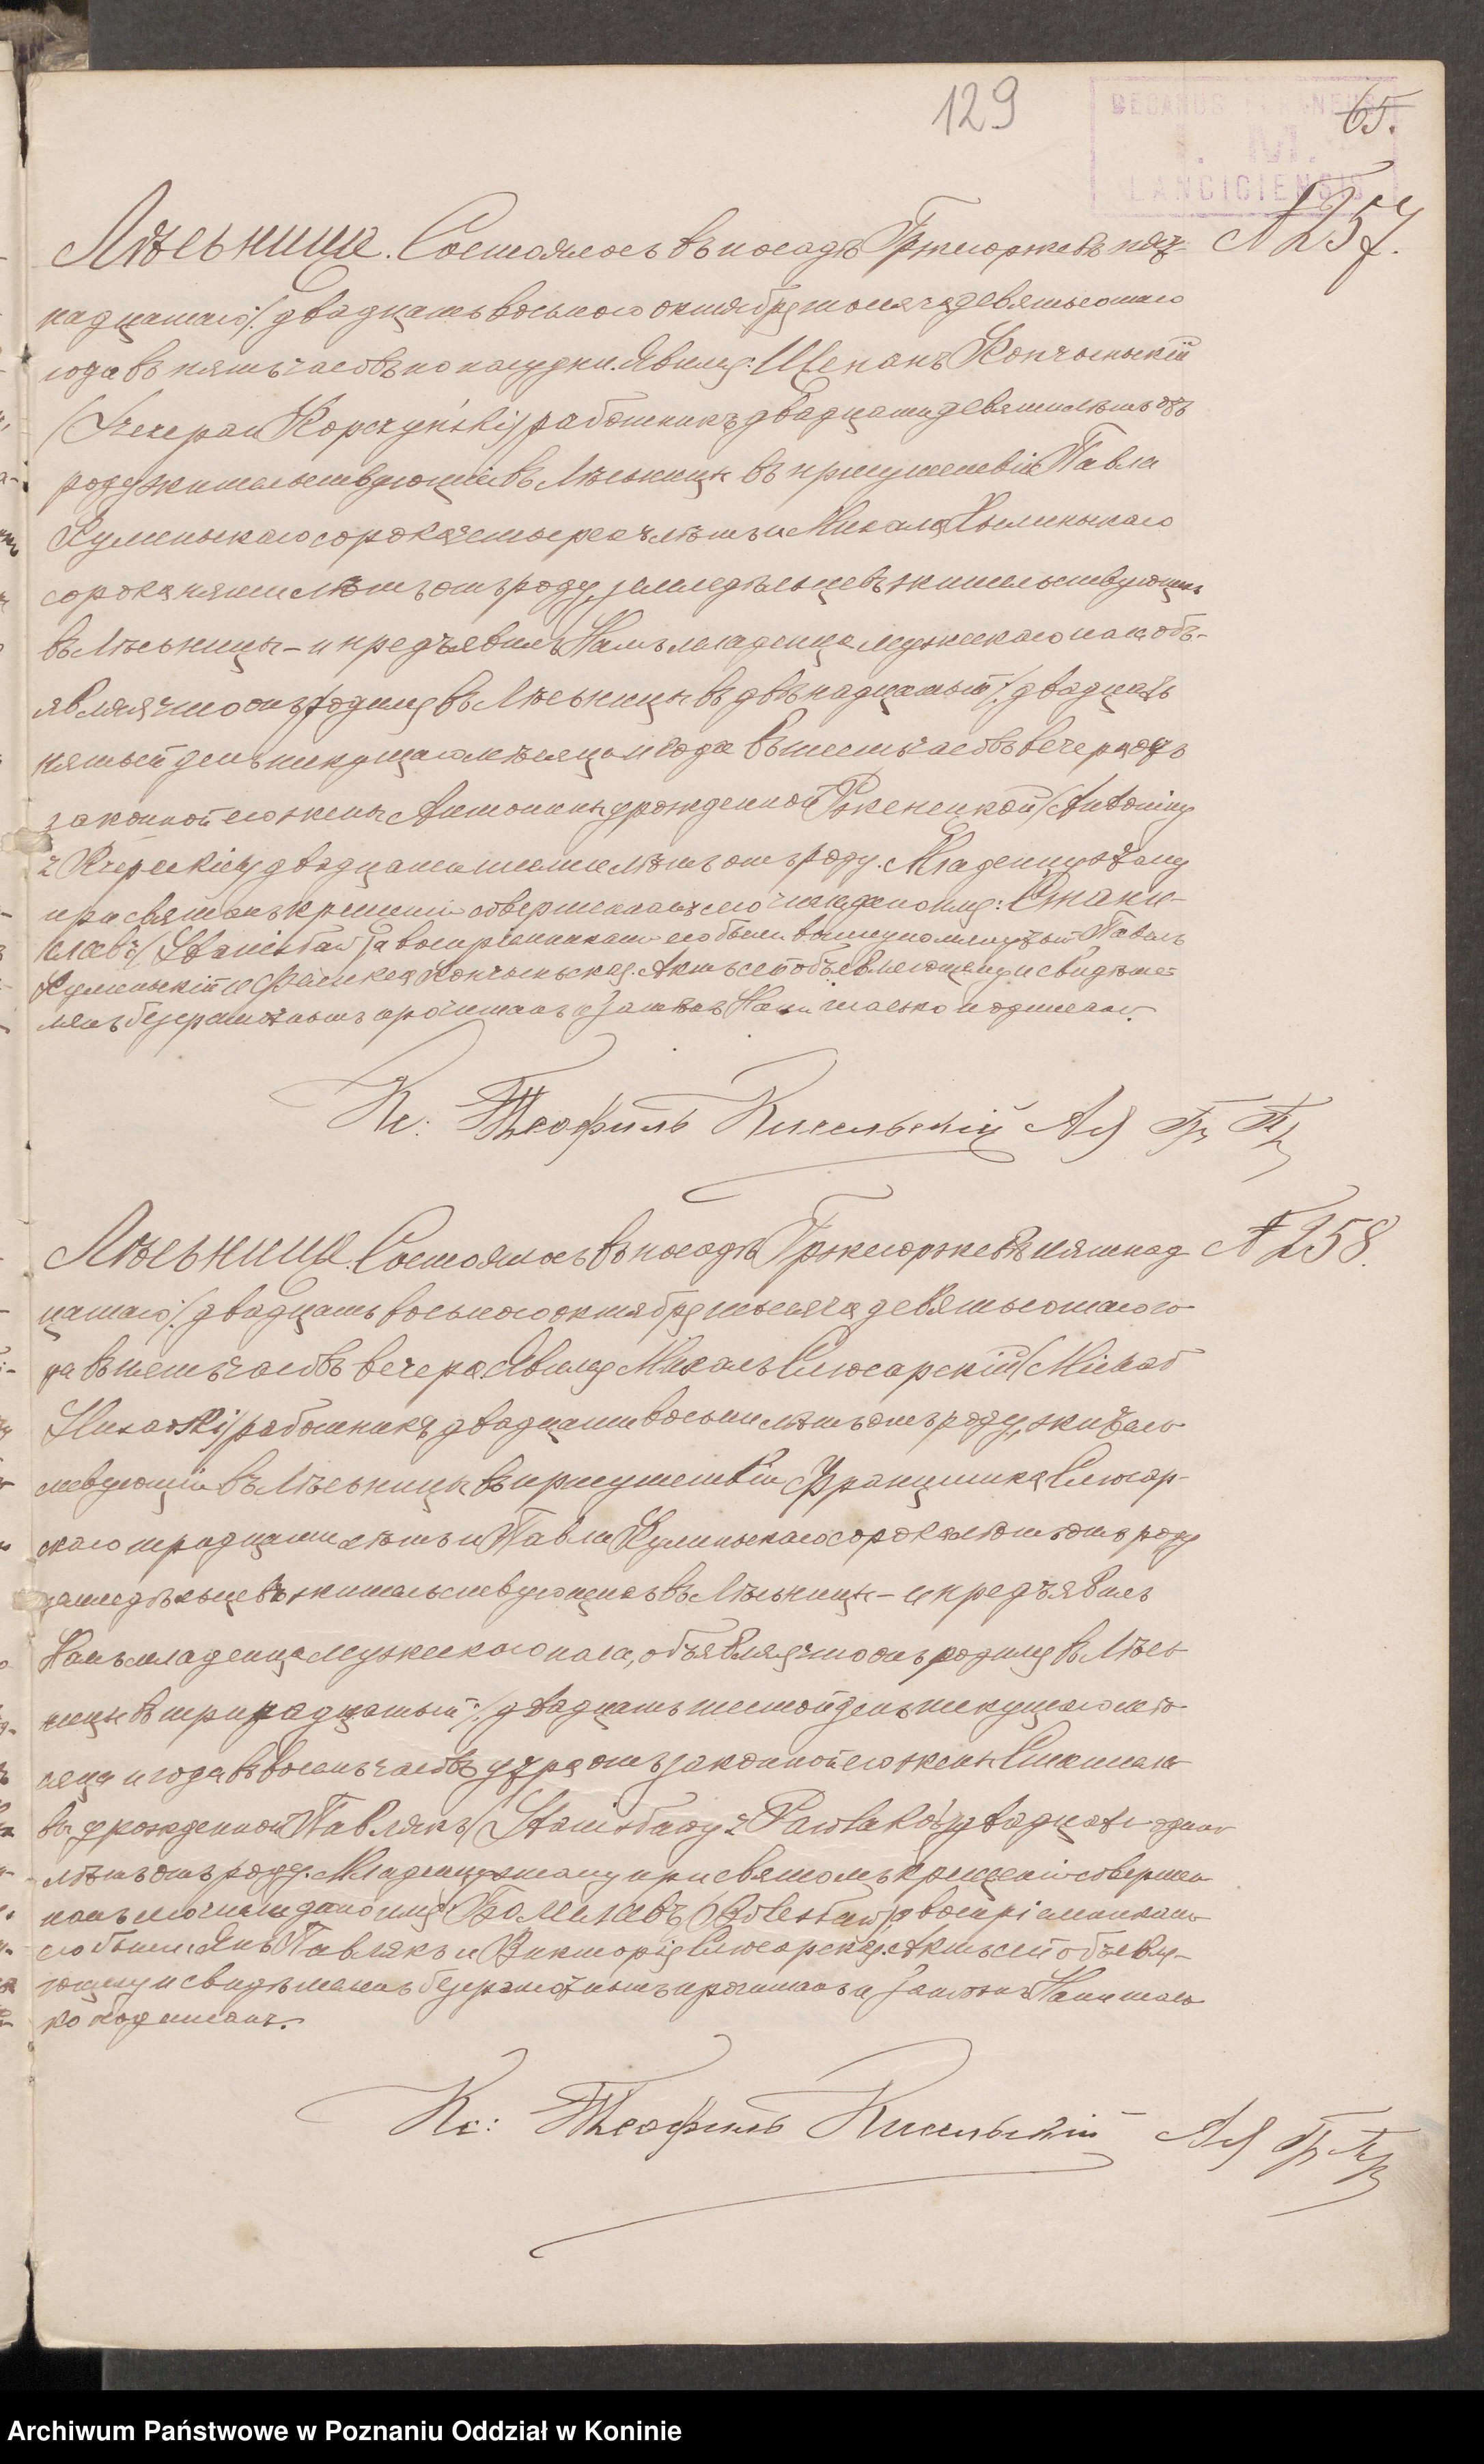 129
65.
DECANUS
LANCICIENSIS
№ 257.
Лѣсьница. Состоялось въ посадѣ Гржегоржевѣ пят-
надцатаго /: двадцать восьмого октября тысяча девятьсотаго
года въ пять часовъ по полудни. Явился: Щепанъ Копчиньскій
/Szczepan Kopczyński/ работникъ двадцати девяти лѣтъ отъ
роду жительствующій въ Лѣсьницѣ въ присутствіи Павла
Кулиньскаго сорока четырехъ лѣтъ и Михала
сорока пяти лѣтъ отъ роду, земледѣльцевъ жительствующихъ
въ Лѣсьницы - и предъявилъ Намъ младенца мужескаго пола объ-
являя что онъ родился въ Лѣсьницы въ двѣнадцатый /: двадцать
пятый день текущаго мѣсяца и года въ шесть часовъ вечера отъ
законной его жены Антонины урожденной /Antoniny
z двадцати шести лѣтъ отъ роду. Младенцу этому
при святомъ крещеніи совершенномъ сего числа дано имя: Стани-
славъ / Stanisław /, а воспріемниками его были вышеупомянутый Павелъ
Кулиньскій и Копчиньская. Актъ сей объявляющему и свидѣте-
лямъ безграмотнымъ прочитанъ и Нами только подписанъ.
Кс: Теофиль Кисельскій
№ 258.
Лѣсьница. Состоялось въ посадѣ Гржегоржевѣ пятнад
цатаго /: двадцать восьмого октября тысяча девятьсотаго го
да въ шесть часовъ вечера. Явился Михалъ Слюсарскій /Michał
Slusarski/ работникъ двадцати восьми лѣтъ отъ роду, житель
ствующій въ Лѣсьницы въ присутствіи Францишка Слюсар-
скаго тридцати лѣтъ и Павла Кулиньскаго сорока лѣтъ отъ роду
земледѣльцевъ жительствующихъ въ Лѣсьницѣ - и предъявилъ
Намъ младенца мужескаго пола, объявляя что онъ родился въ Лѣсь
ницы въ тринадцатый /: двадцать шестой день текущаго мѣ
сяца и года въ восемь часовъ утра отъ законной его жены Станисла
вы урожденной Павлякъ /Stanisławy z Pawlaków/ двадцати одного
лѣтъ отъ роду. Младенцу этому при святомъ крещеніи совершен
номъ сего числа дано имя Болеславъ /Bolesław/, а воспріемниками
его были Янъ Павлякъ и Викторія Слюсарская. Актъ сей объявля-
ющему и свидѣтелямъ безграмотнымъ прочитанъ и Нами толь
ко подписанъ.
Кс: Теофиль Кисельскій
Archiwum Państwowe w Poznaniu Oddział w Koninie